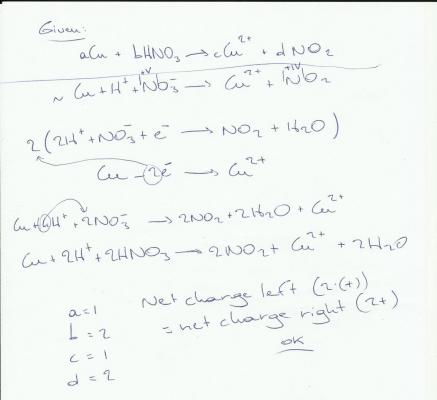 Given:
aCu + bHNO₃ → cCu²⁺ + dNO₂
~ Cu + H⁺ + NO₃⁻ → Cu²⁺ + NO₂
+V +IV
2(2H⁺ + NO₃⁻ + e⁻ → NO₂ + H₂O)
Cu - 2e⁻ → Cu²⁺
Cu + 4H⁺ + 2NO₃⁻ → 2NO₂ + 2H₂O + Cu²⁺
Cu + 2H⁺ + 2HNO₃ → 2NO₂ + Cu²⁺ + 2H₂O
a = 1
b = 2
c = 1
d = 2
Net charge left (2·(+))
= net charge right (2+)
OK